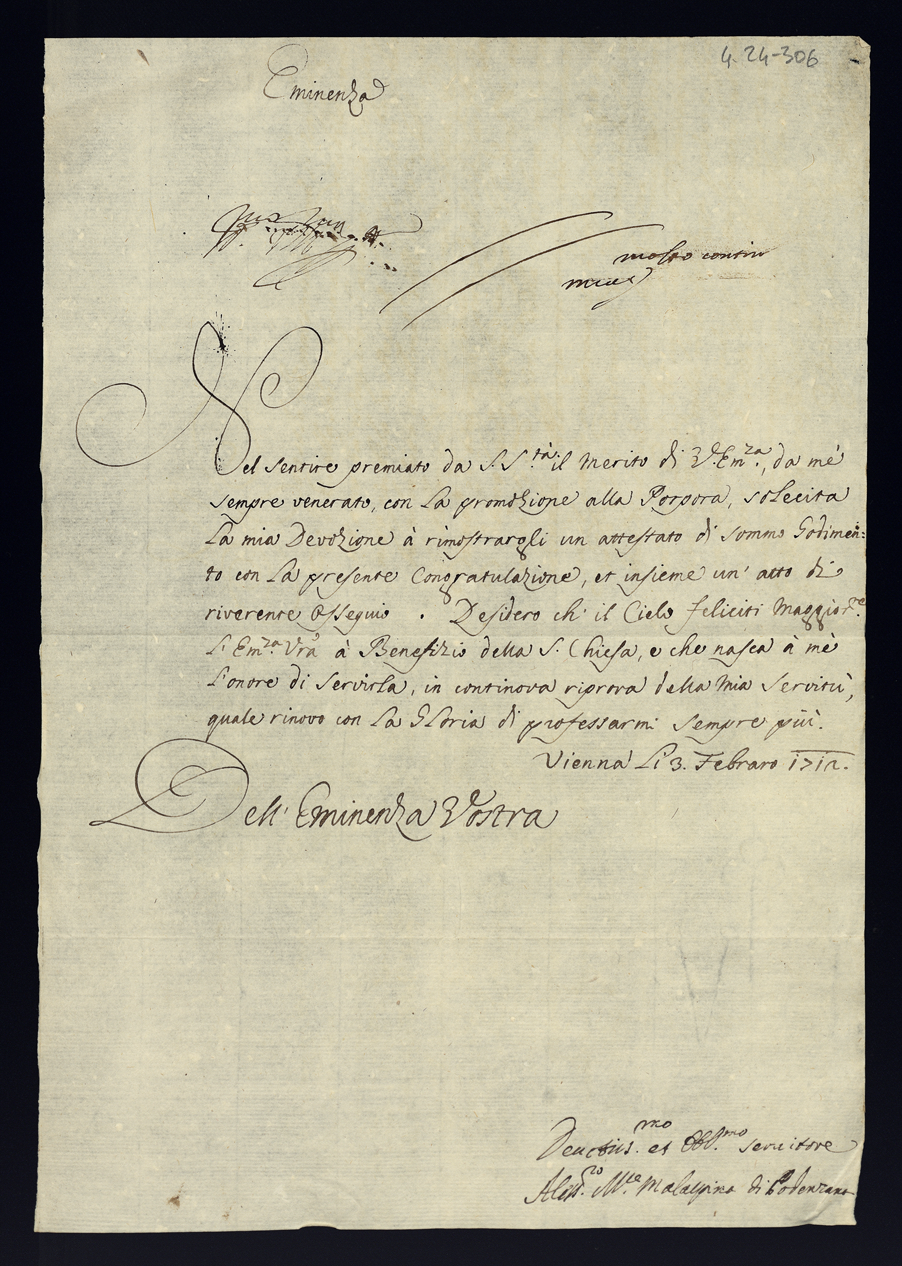 4. 24-306
Eminenza
molto contin
Nel sentire premiato da S. S.tà il merito di V. Em.za, da mé
sempre venerato, con La promozione alla Porpora, solecita
La mia Devozione à rimostrargli un attestato di sommo Godimen:
to con La presente Congratulazione, et insieme un' atto di
riverente Ossequio. Desidero ch' il Cielo feliciti Maggior.te
L'Em.za Vrã à Benefizio della S. Chiesa, e che nasca à mè
L'onore di Servirla, in continova riprova della Mia Servitù,
quale rinovo con La Gloria di professarmi sempre più.
Vienna Li 3. Febraro 1712.
Dell' Eminenza Vostra
Deuotiss.mo et Obl.mo seruitore
Aless.ro M.se Malaspina di Podenzana